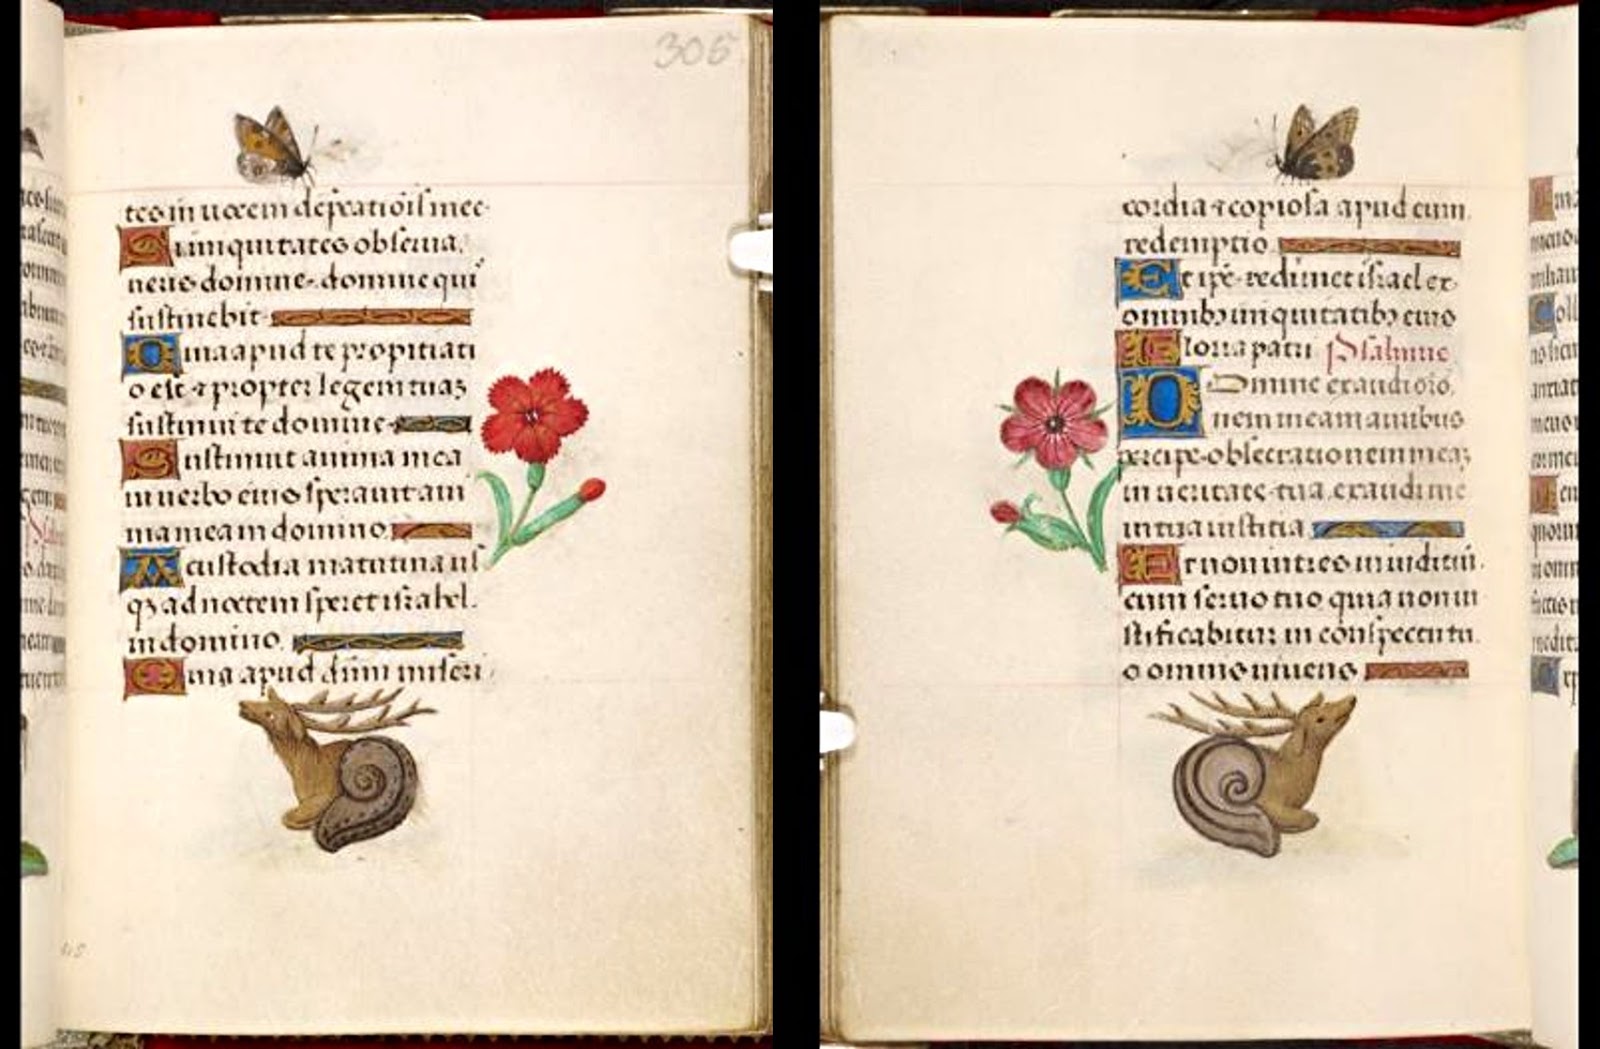 306
tes in vocem deprecatiōis mee
Si iniquitates observa
veris domine domine qui
sustinebit
Quia apud te propitiati
o est ⁊ propter legem tuaȝ
sustinui te domine
Sustinuit anima mea
in verbo eius speravit ani
ma mea in domino
A custodia matutina us
qȝ ad noctem speret israhel
in domino
Quia apud dūm miseri
cordia ⁊ copiosa apud eum
redemptio
Et ipē redimet israel ex
omnibȝ iniquitatibȝ eius
Gloria patri Psalmus
Domine exaudi orō
nem meam auribus
percipe obsecrationem meaȝ
in veritate tua exaudi me
in tua iusticia
Et non intres in iuditiū
cum servo tuo quia non iu
stificabitur in conspectu tu
o omnis vivens